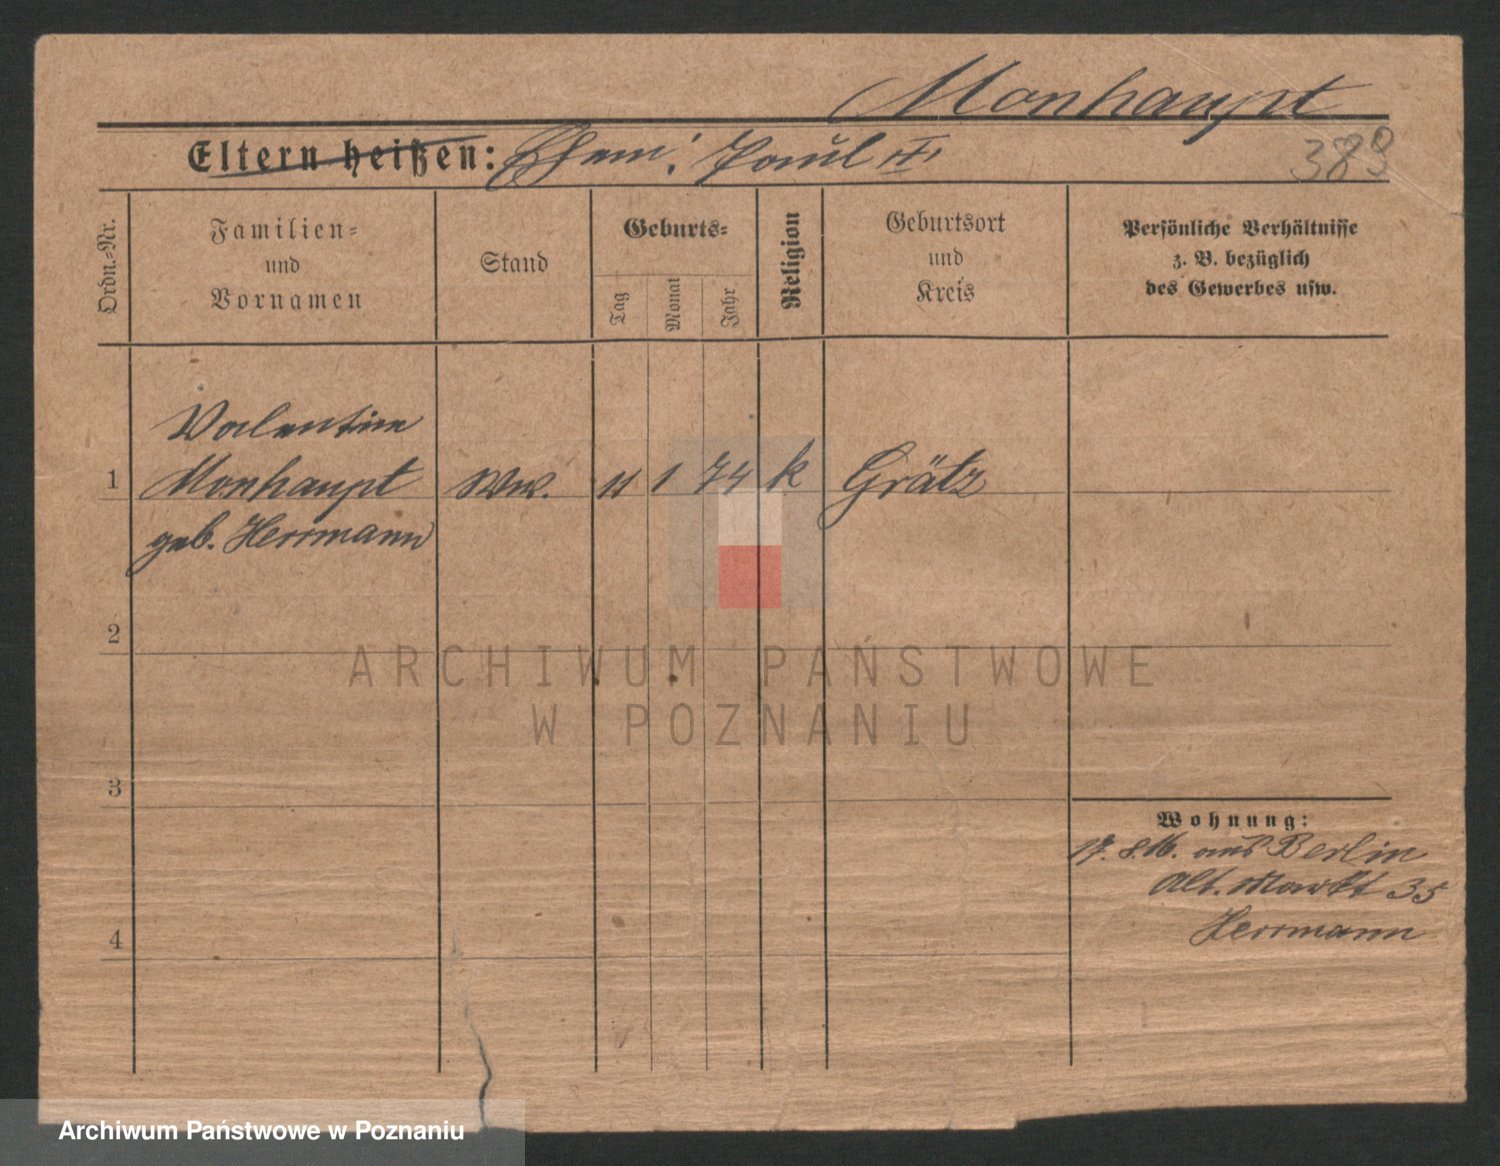 Monhaupt
Eltern heißen: Ehem: Paul
389
Ordn.-Nr.
Familien-
und
Vornamen
Stand
Geburts-
Tag
Monat
Jahr
Religion
Geburtsort
und
Kreis
Persönliche Verhältnisse
z. B. bezüglich
des Gewerbes usw.
Valentine
1 Monhaupt Ww. 11 1 74 k Grätz
geb. Herrmann
2
ARCHIWUM PAŃSTWOWE
W POZNANIU
3
Wohnung:
17. 8. 16. aus Berlin
Alt. Markt 35
Herrmann
4
Archiwum Państwowe w Poznaniu